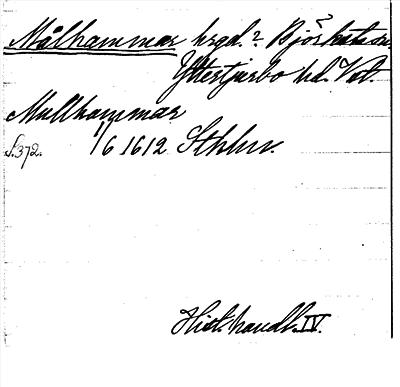 Målhammar hrgd.? Björksta sn.
Yttertjurbo hd. Vstm.
Mullhammar
s. 372. 1/6 1612 Sthlm.
Hist. handl. IV.